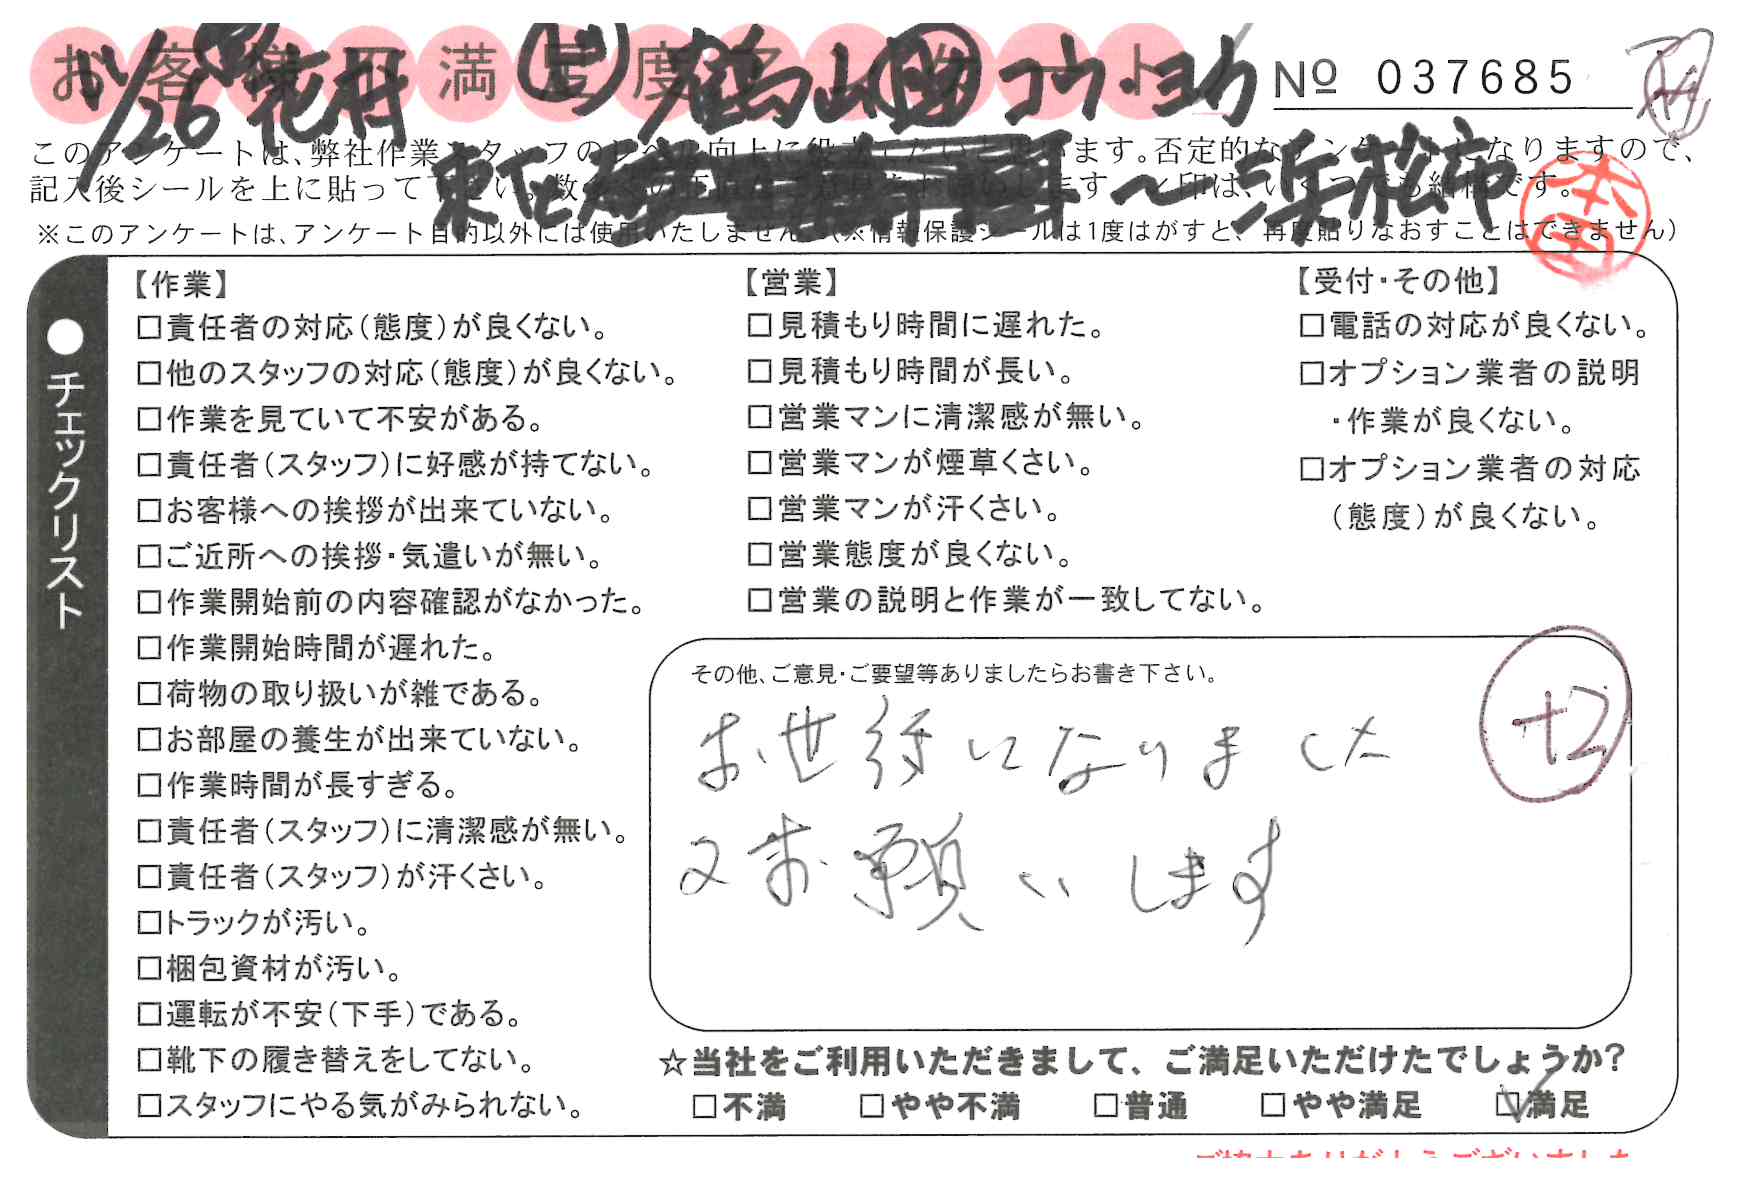 お客様の満足度アンケート
1/26 花村 鶴山 コウ・ヨク
№ 037685
このアンケートは、弊社作業スタッフのレベル向上に役立てたいと思います。否定的なアンケートになりますので、
記入後シールを上に貼って下さい。
東区 〜浜松市
本
※このアンケートは、アンケート目的以外には使用いたしません。(※情報保護シールは1度はがすと、再度貼りなおすことはできません)
●チェックリスト
【作業】
□責任者の対応(態度)が良くない。
□他のスタッフの対応(態度)が良くない。
□作業を見ていて不安がある。
□責任者(スタッフ)に好感が持てない。
□お客様への挨拶が出来ていない。
□ご近所への挨拶・気遣いが無い。
□作業開始前の内容確認がなかった。
□作業開始時間が遅れた。
□荷物の取り扱いが雑である。
□お部屋の養生が出来ていない。
□作業時間が長すぎる。
□責任者(スタッフ)に清潔感が無い。
□責任者(スタッフ)が汗くさい。
□トラックが汚い。
□梱包資材が汚い。
□運転が不安(下手)である。
□靴下の履き替えをしてない。
□スタッフにやる気がみられない。
【営業】
□見積もり時間に遅れた。
□見積もり時間が長い。
□営業マンに清潔感が無い。
□営業マンが煙草くさい。
□営業マンが汗くさい。
□営業態度が良くない。
□営業の説明と作業が一致してない。
【受付・その他】
□電話の対応が良くない。
□オプション業者の説明
・作業が良くない。
□オプション業者の対応
(態度)が良くない。
その他、ご意見・ご要望等ありましたらお書き下さい。
+2
お世待になりました
又お願いします
☆当社をご利用いただきまして、ご満足いただけたでしょうか?
□不満 □やや不満 □普通 □やや満足 ☑満足
ご協力ありがとうございました